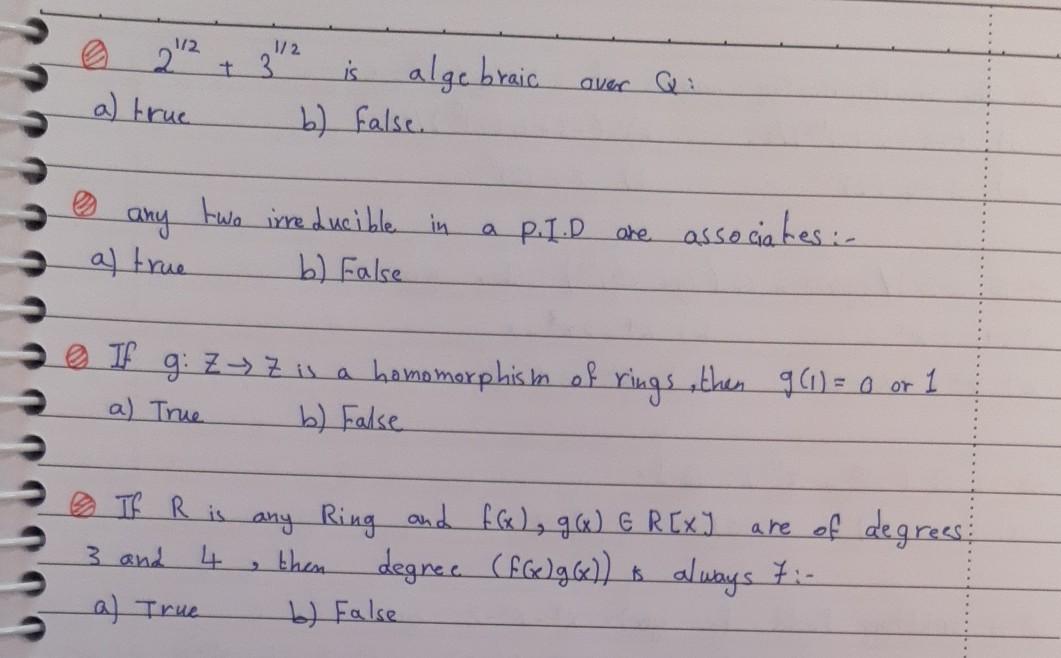 2^1/2 + 3^1/2 is algebraic over Q:
a) true b) False.
any two irreducible in a P.I.D are associates:-
a) true b) False
If g: Z → Z is a homomorphism of rings, then g(1) = 0 or 1
a) True b) False
If R is any Ring and f(x), g(x) ∈ R[x] are of degrees
3 and 4, then degree (f(x)g(x)) is always 7:-
a) True b) False